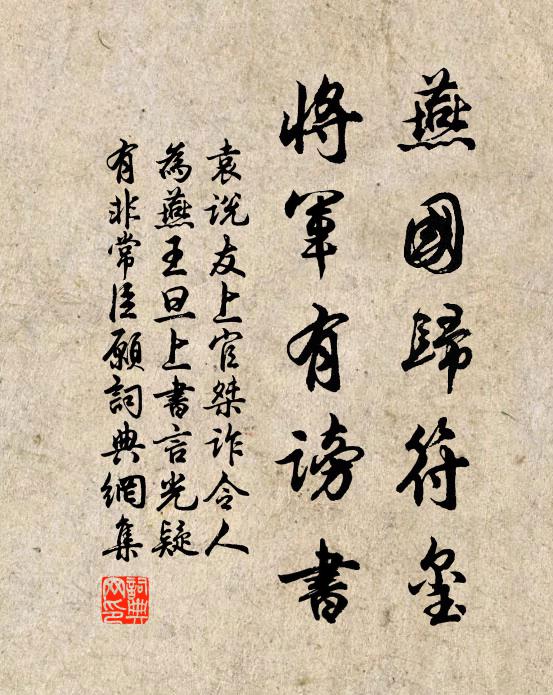 燕國歸符璽
將軍有謗書
袁説友上官桀诈令人
為燕王旦上書言光疑
有非常臣願詞典網集
詞典
网印